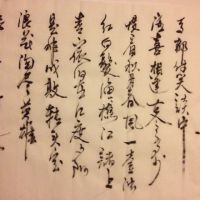 浪花淘盡英雄
是非成敗轉頭空
青山依舊在幾度夕陽
紅白髮漁樵江渚上
慣看秋月春風一壺濁
酒喜相逢古今多少
事都付笑談中